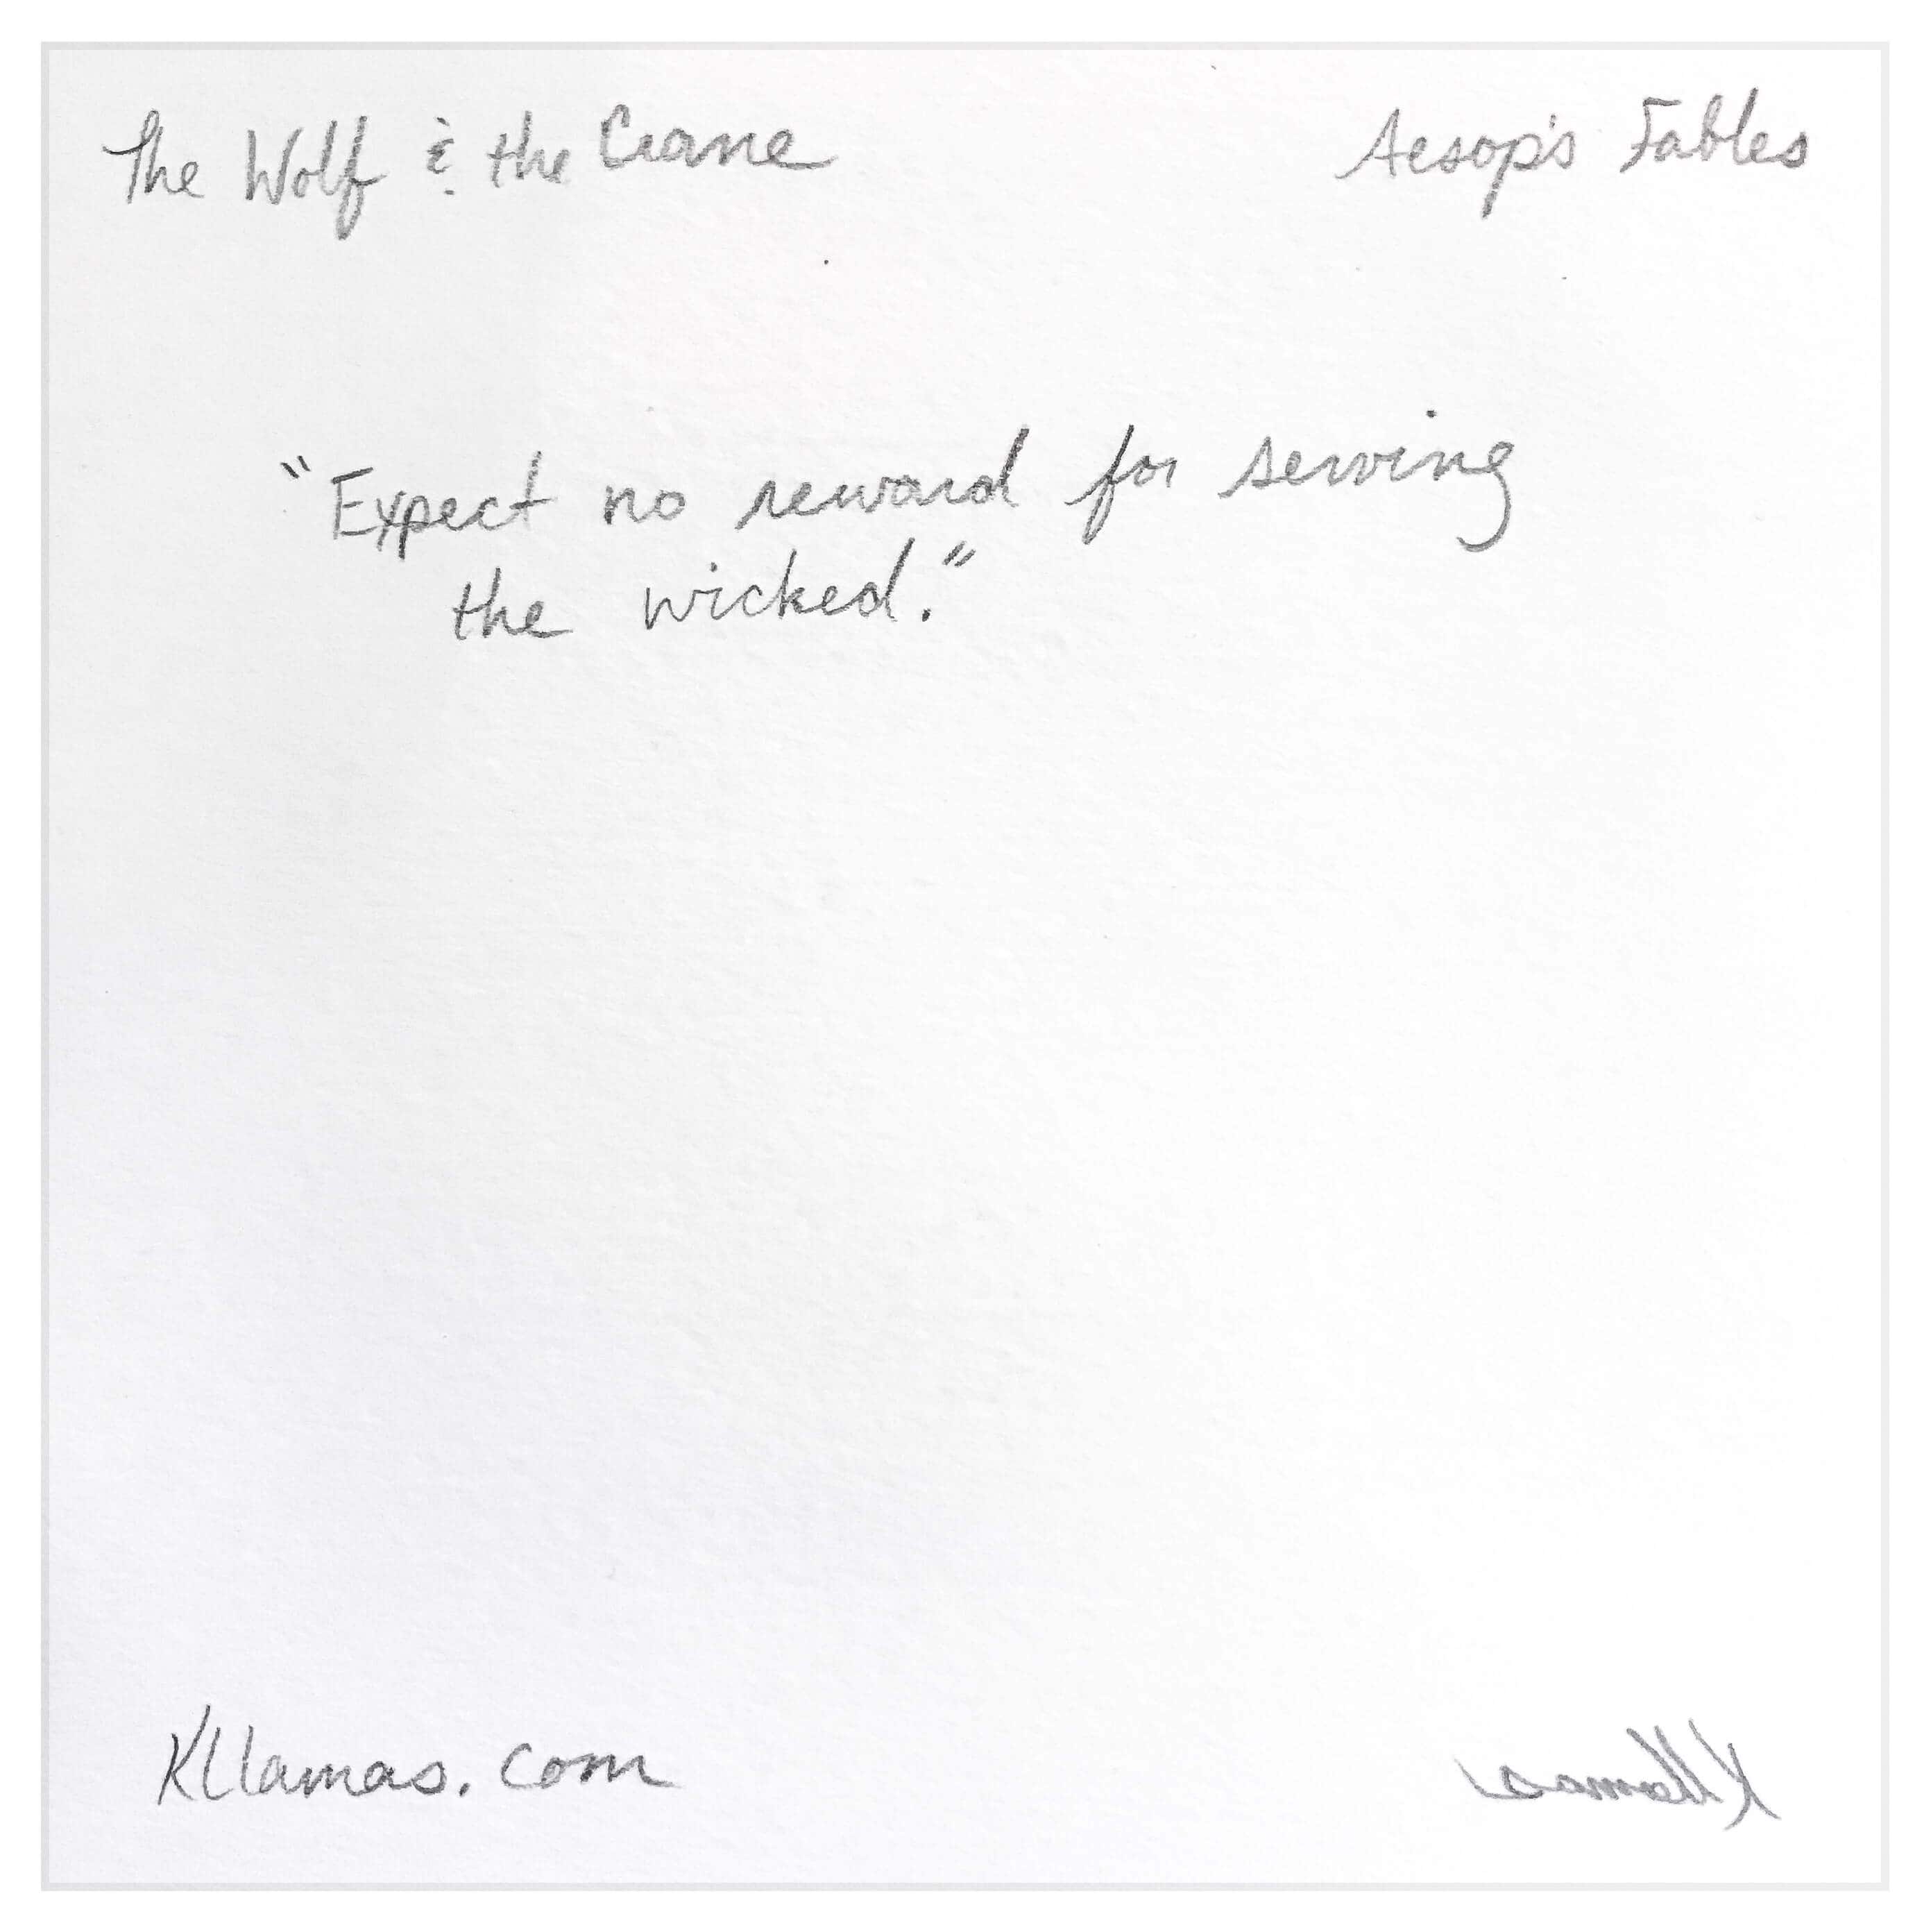 The Wolf & the Crane
Aesop's Fables
"Expect no reward for serving
the wicked."
KLlamas.com
KLlamas